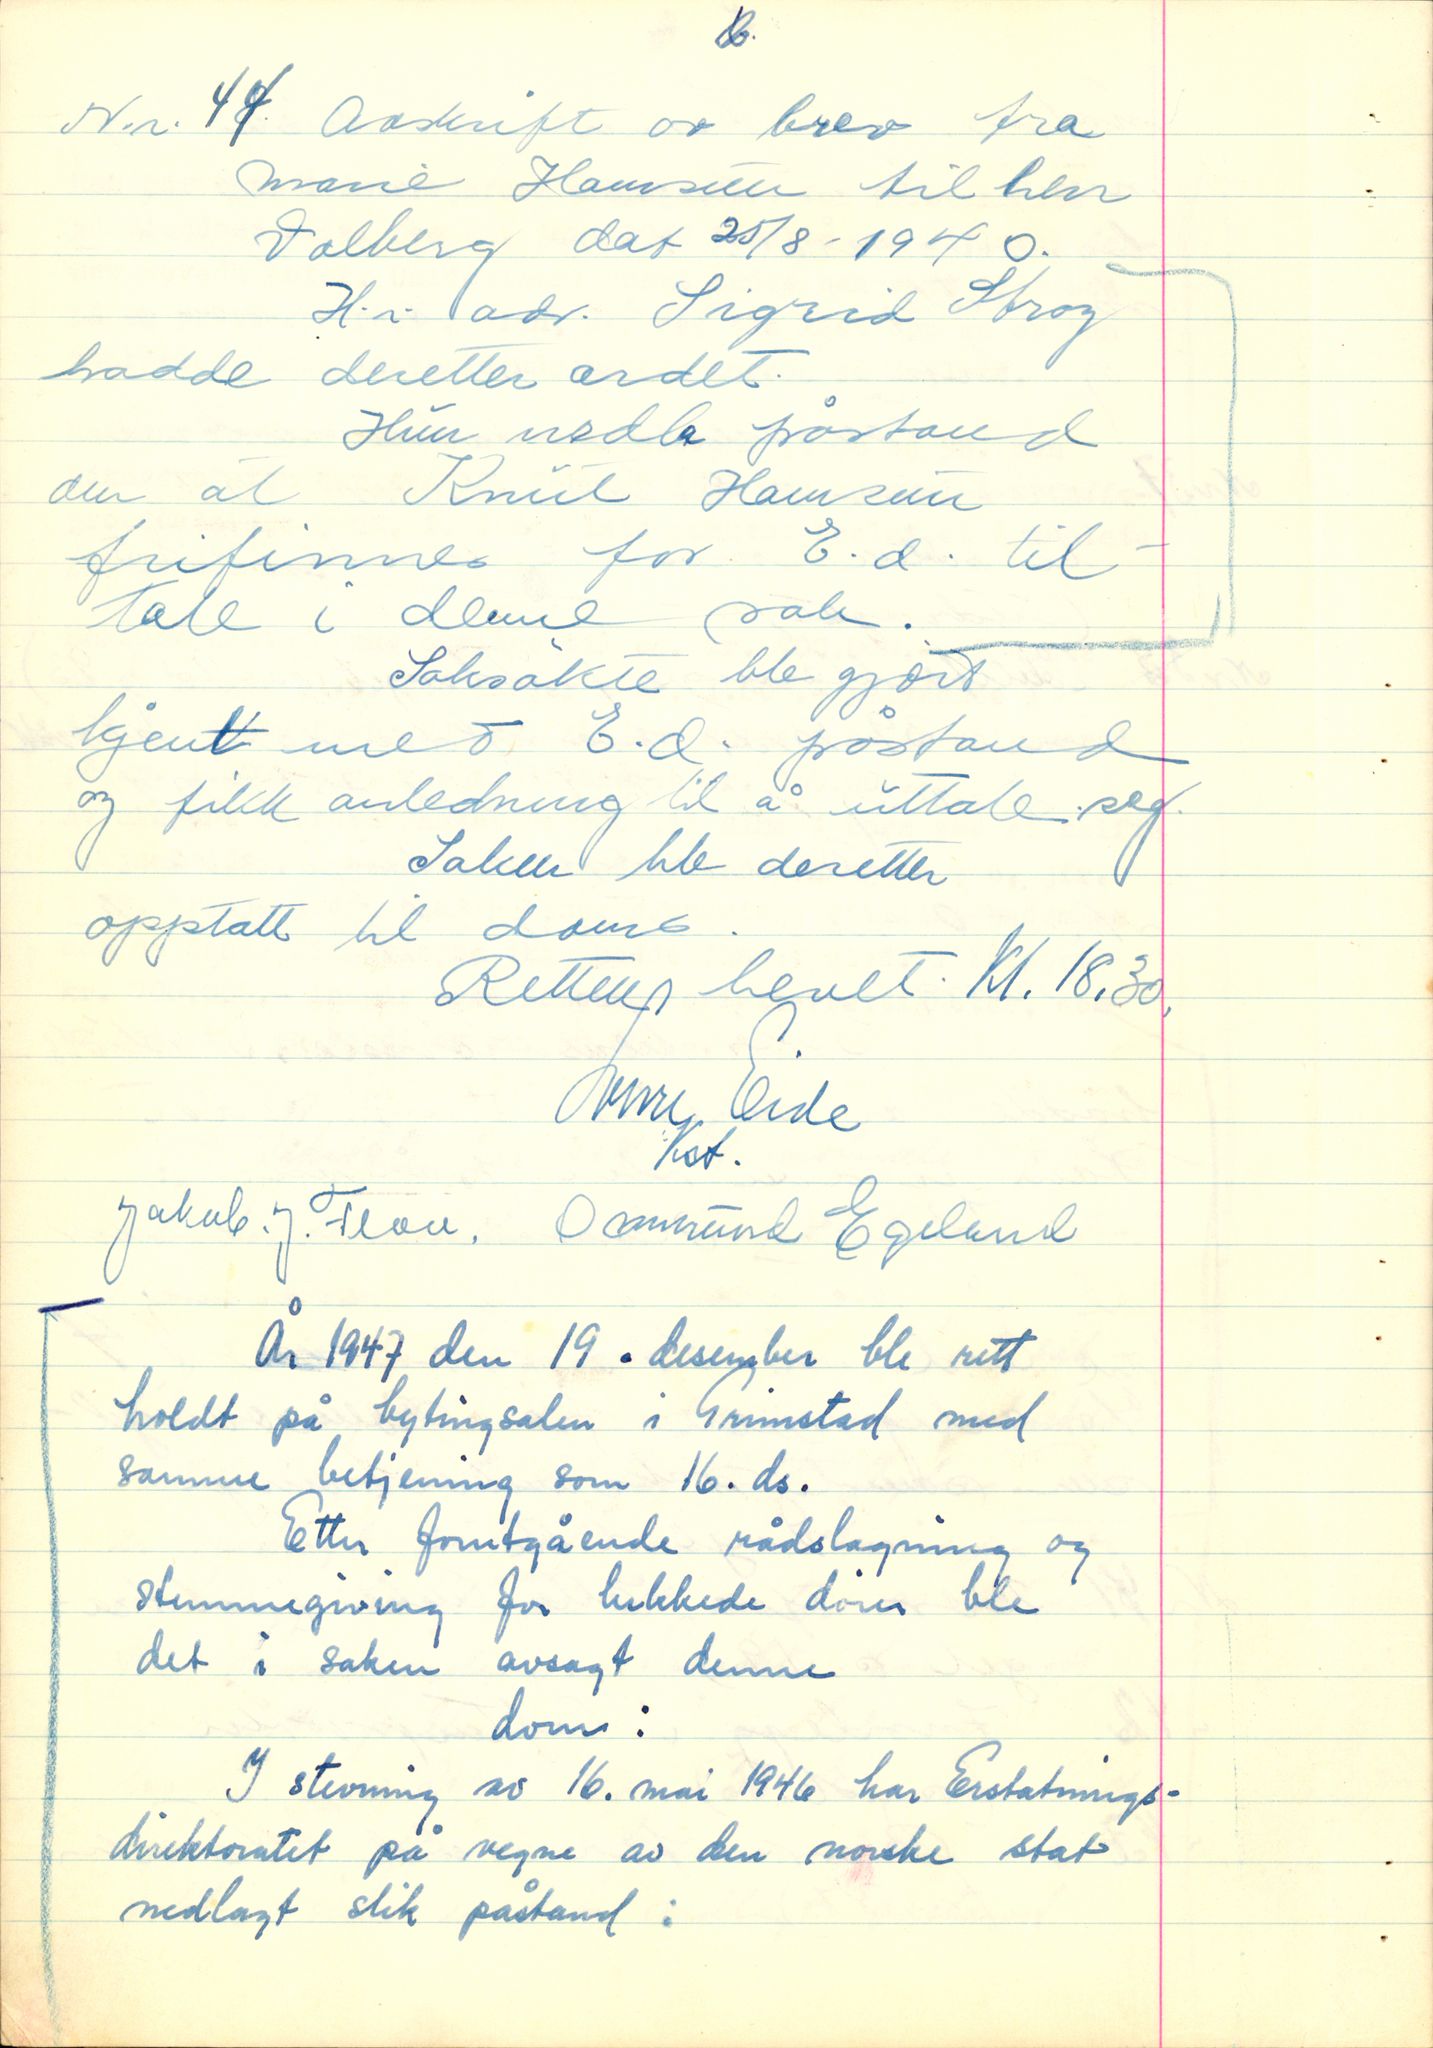 Nr. 44. Avskrift av brev fra
Marie Hamsun til herr
Dalberg dat 25/8-1940.
H.r. adv. Sigrid Stray
hadde deretter ordet.
Hun nedla påstand
om at Knut Hamsun
frifinnes for E.d. til-
tale i denne sak.
Saksøkte ble gjort
kjent med E.d. påstand
og fikk anledning til å uttale seg.
Saken ble deretter
opptatt til doms.
Retten hevet. Kl. 18,30.
Sverre Eide
Kst.
Jakob. J. Flaa. Omund Egeland
År 1947 den 19. desember ble rett
holdt på bytingsalen i Grimstad med
samme betjening som 16. ds.
Etter foretgående rådslagning og
stemmegiving for lukkede dører ble
det i saken avsagt denne
dom:
I stevning av 16. mai 1946 har Erstatnings-
direktoratet på vegne av den norske stat
nedlagt slik påstand: